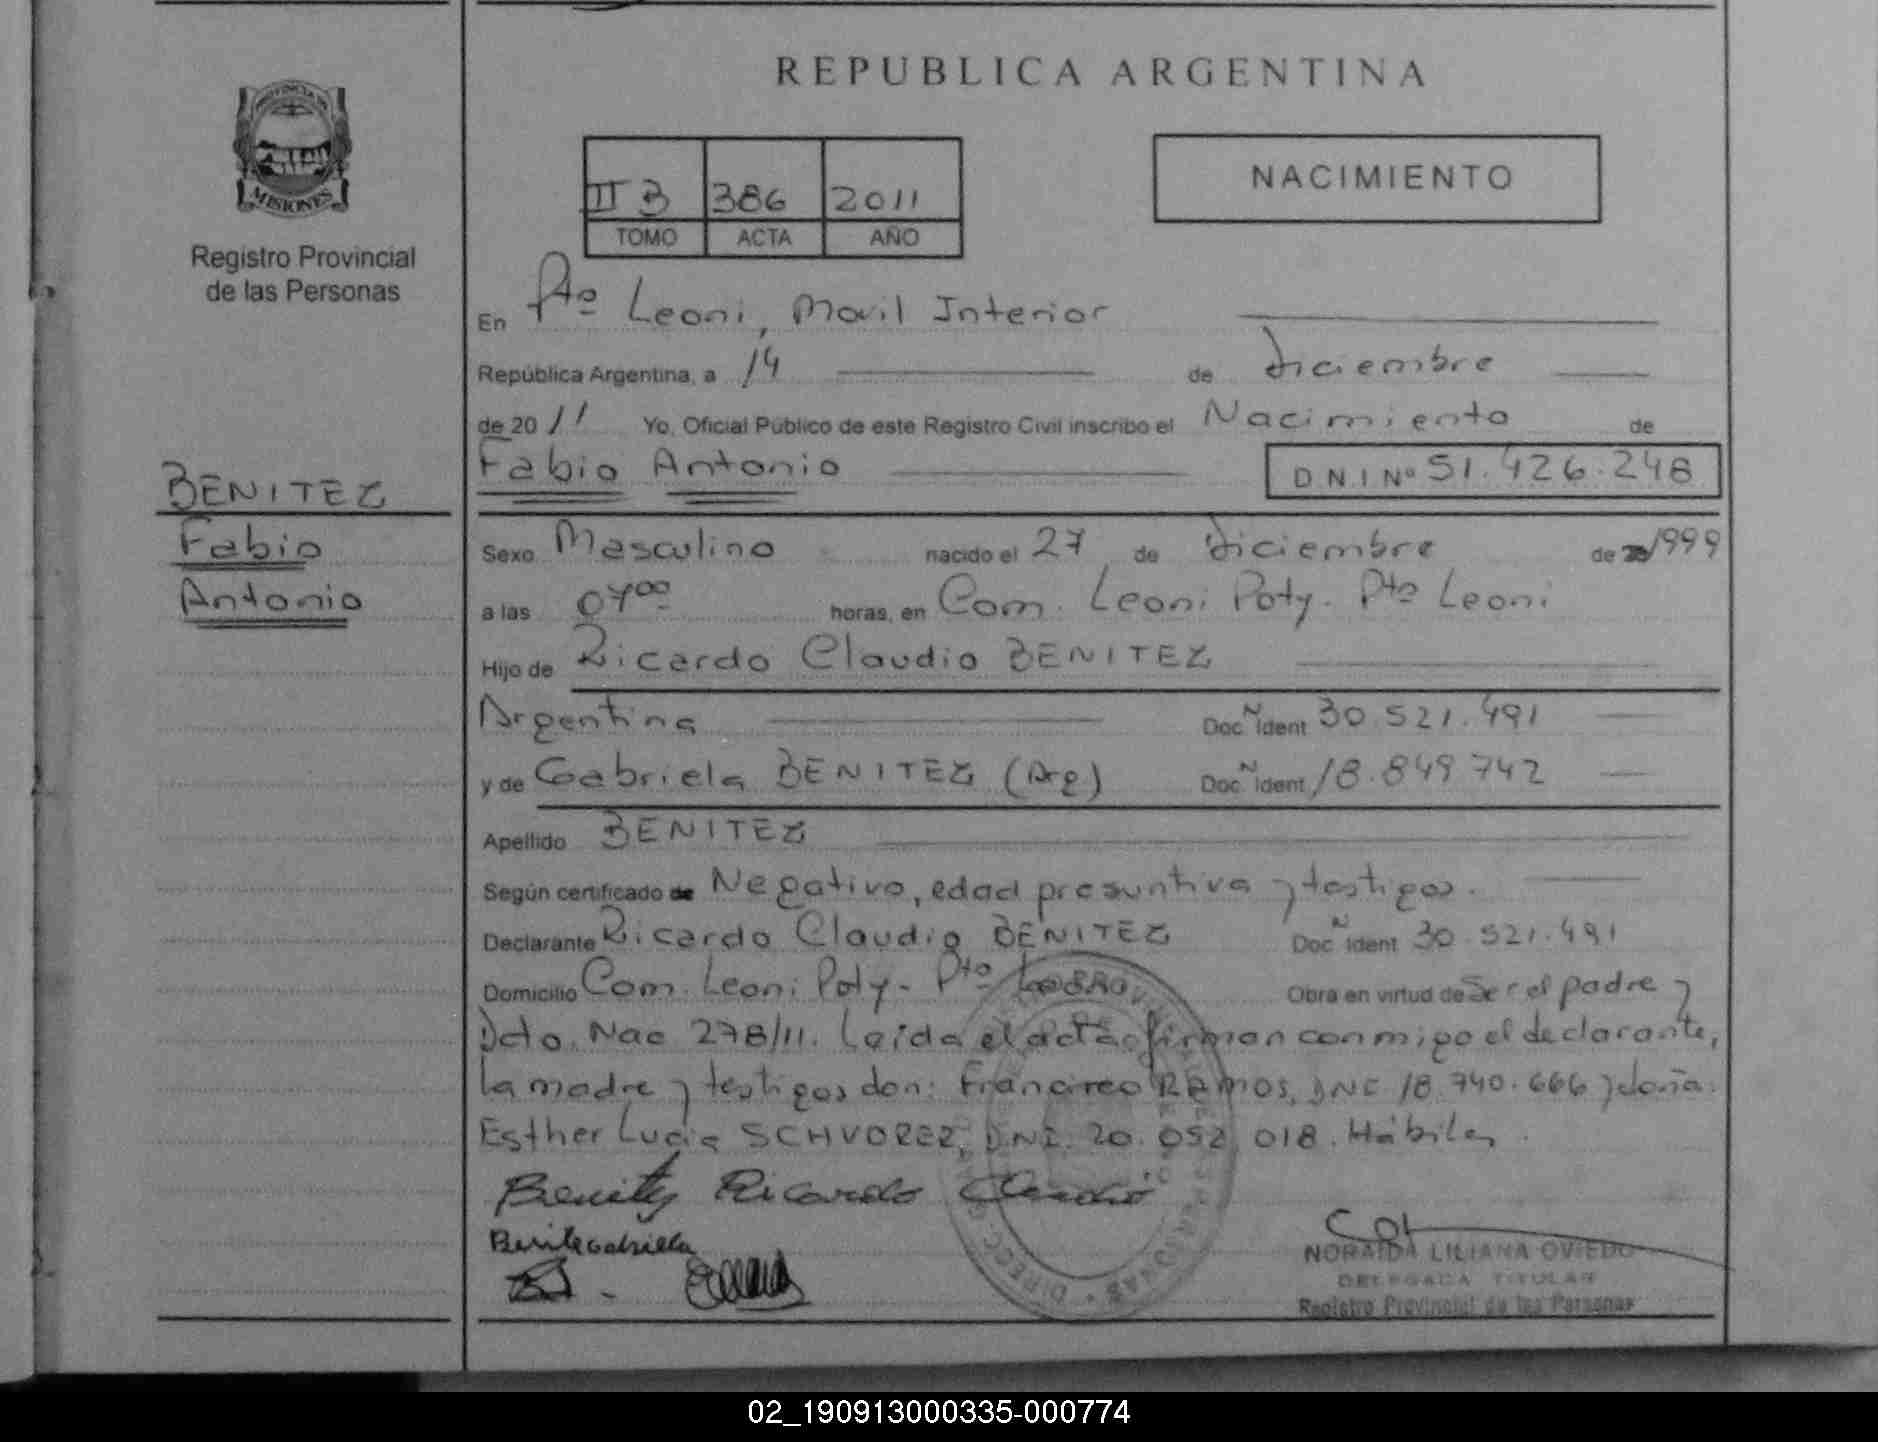 REPUBLICA ARGENTINA
PROVINCIA DE
MISIONES
Registro Provincial
de las Personas
II B 386 2011
TOMO ACTA AÑO
NACIMIENTO
En Pto Leoni, Movil Interior
República Argentina, a 14 de Diciembre
de 2011 Yo, Oficial Público de este Registro Civil inscribo el Nacimiento de
Fabio Antonio D.N.I Nº 51.426.248
BENITEZ
Fabio
Antonio
Sexo Masculino nacido el 27 de Diciembre de 1999
a las 0400 horas, en Com. Leoni Poty. Pto Leoni
Hijo de Ricardo Claudio BENITEZ
Argentina Doc N Ident 30.521.491
y de Gabriela BENITEZ (Arg) Doc N Ident 18.849.742
Apellido BENITEZ
Según certificado de Negativo, edad presuntiva y testigos.
Declarante Ricardo Claudio BENITEZ Doc N Ident 30.521.491
Domicilio Com. Leoni Poty - Pto Obra en virtud de Ser el padre y
Dcto. Nac 278/11. Leida el acta firman conmigo el declarante,
la madre y testigos don: Francisco RAMOS, DNI 18.740.666 y doña:
Esther Lucia SCHVOREZ, DNI. 20.052.018. Hábiles.
Benitez Ricardo Claudio
Benite Gabriela
NORAIDA LILIANA OVIEDO
DELEGADA TITULAR
Registro Provincial de las Personas
02_190913000335-000774